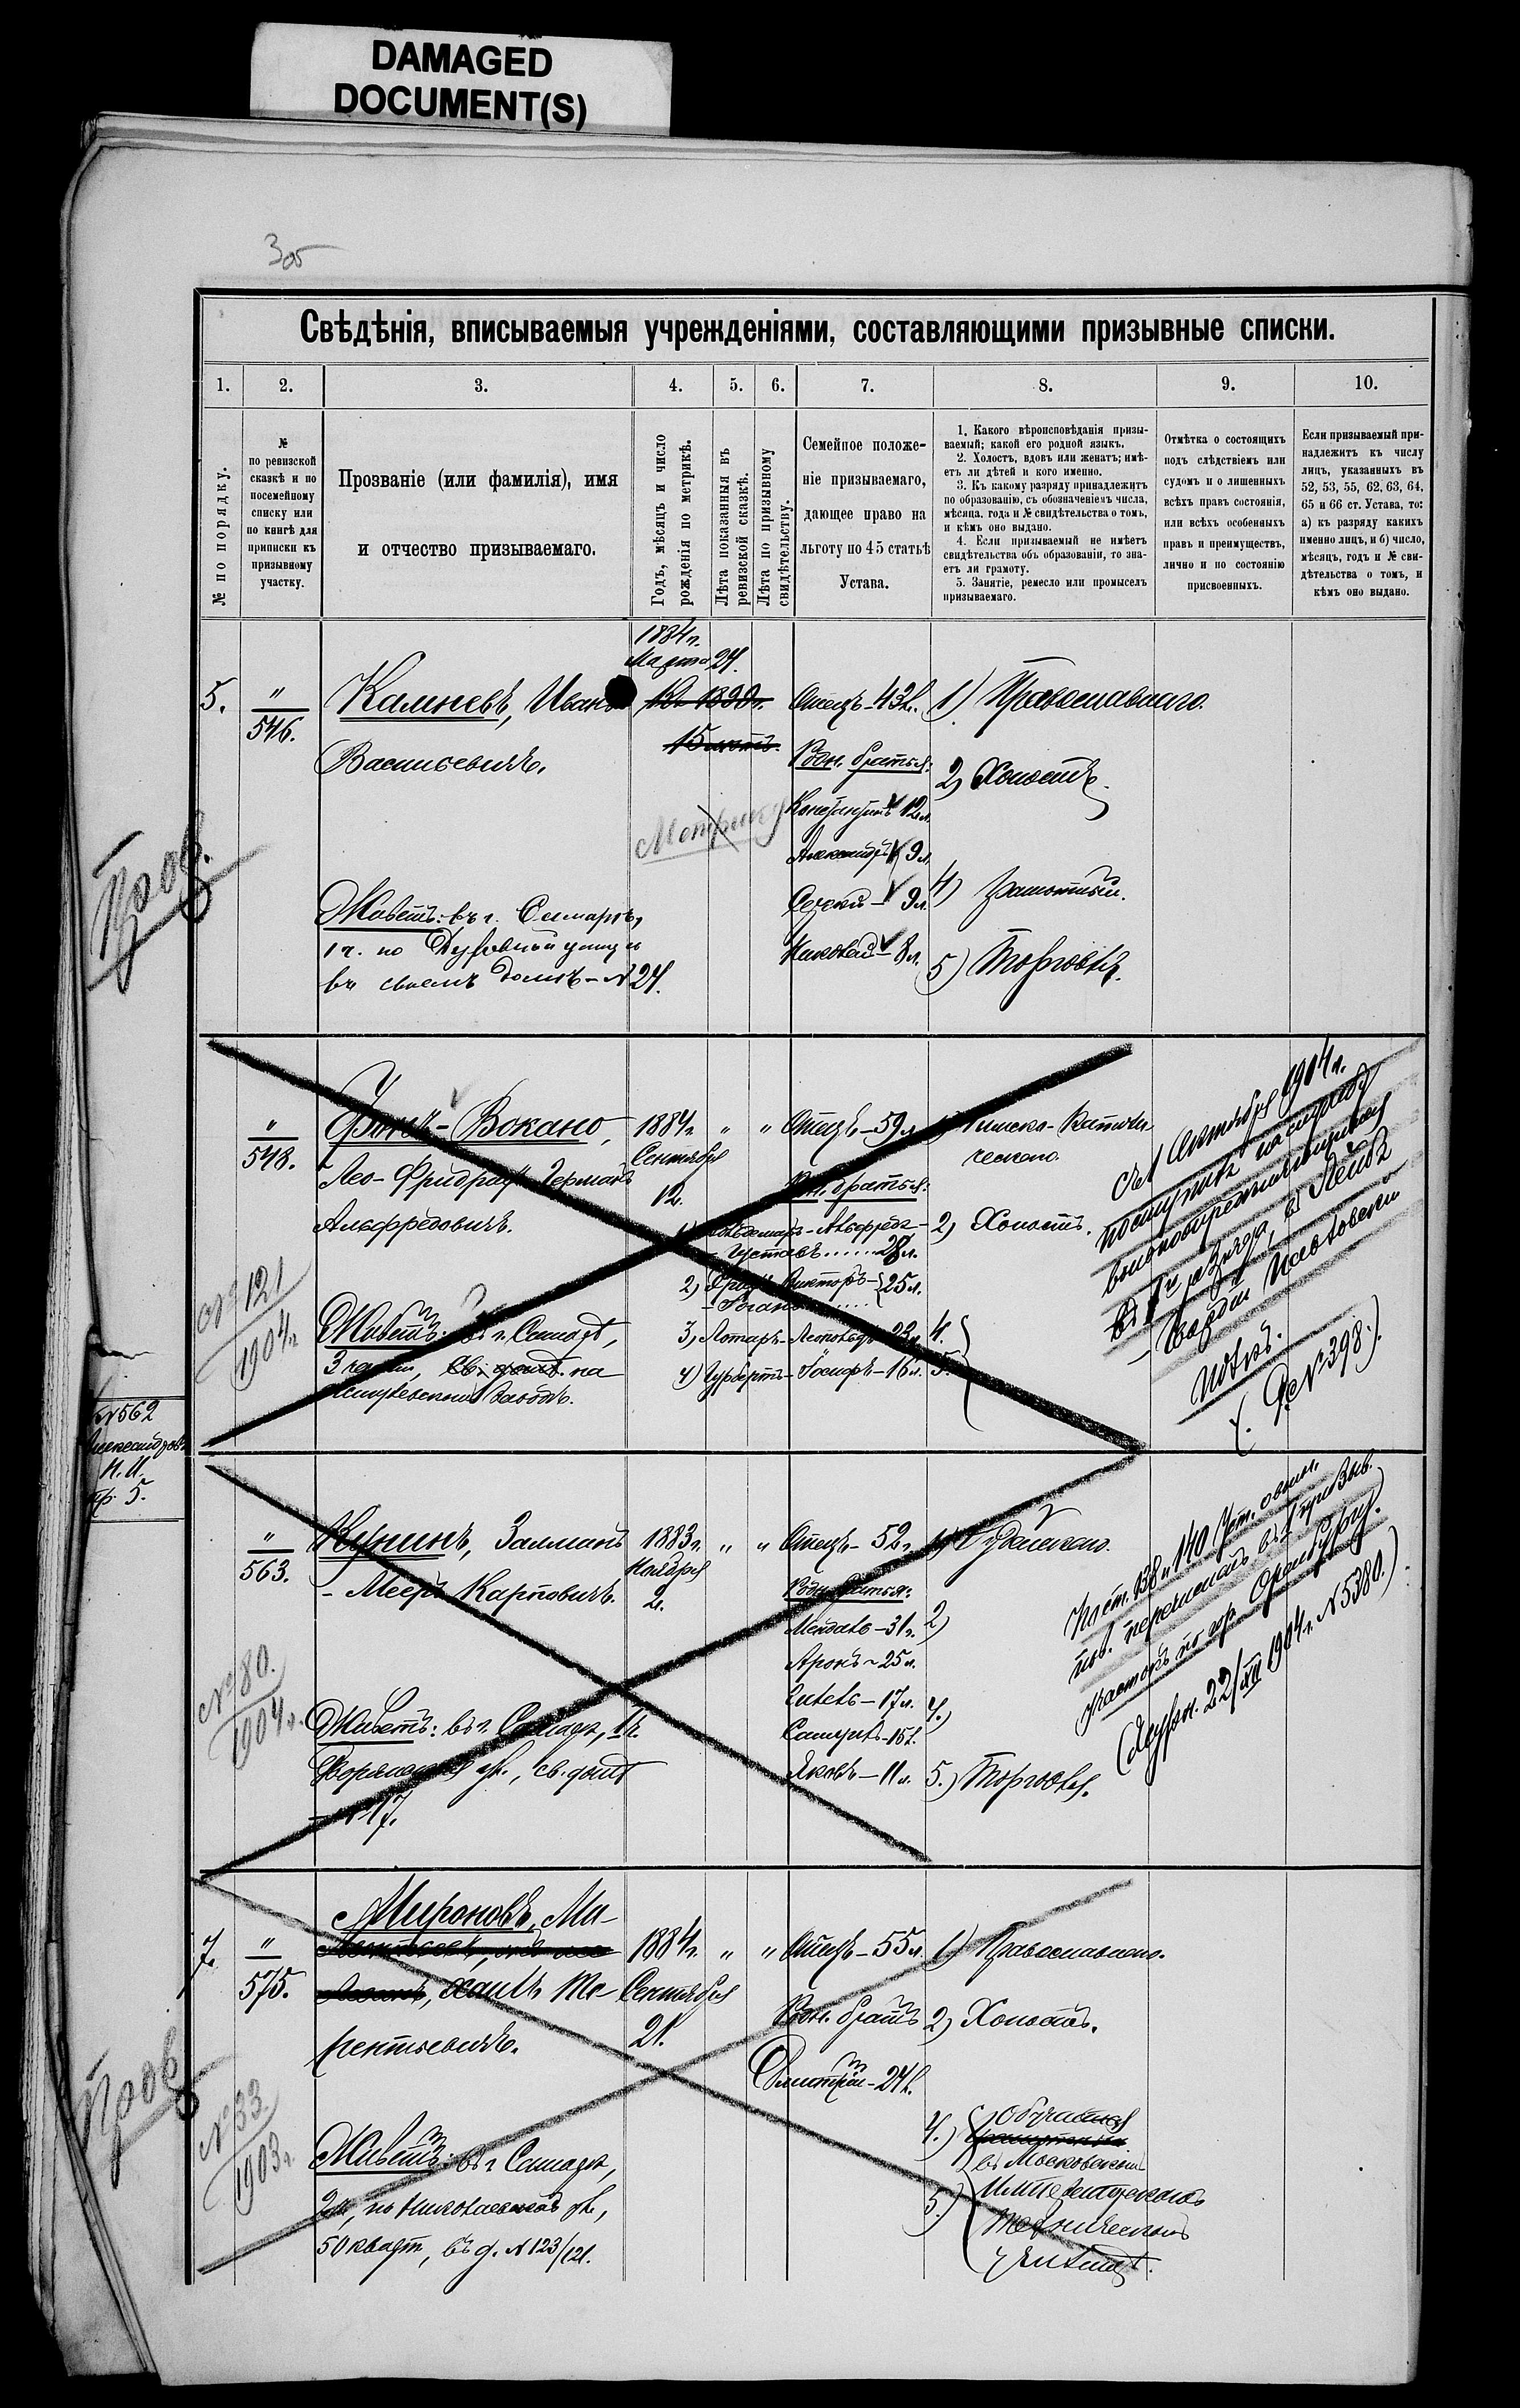 DAMAGED
DOCUMENT(S)
305
Свѣдѣнія, вписываемыя учрежденіями, составляющими призывные списки.
1.
2.
3.
4.
5.
6.
7.
8.
9.
10.
№ по порядку.
№
по ревизской
сказкѣ и по
посемейному
списку или
по книгѣ для
приписки къ
призывному
участку.
Прозваніе (или фамилія), имя
и отчество призываемаго.
Годъ, мѣсяцъ и число
рожденія по метрикѣ.
Лѣта показанныя въ
ревизской сказкѣ.
Лѣта по призывному
свидѣтельству.
Семейное положе-
ніе призываемаго,
дающее право на
льготу по 45 статьѣ
Устава.
1. Какого вѣроисповѣданія призы-
ваемый; какой его родной языкъ.
2. Холостъ, вдовъ или женатъ; имѣ-
етъ ли дѣтей и кого именно.
3. Къ какому разряду принадлежитъ
по образованію, съ обозначеніемъ числа,
мѣсяца, года и № свидѣтельства о томъ,
и кѣмъ оно выдано.
4. Если призываемый не имѣетъ
свидѣтельства объ образованіи, то зна-
етъ ли грамоту.
5. Занятіе, ремесло или промыселъ
призываемаго.
Отмѣтка о состоящихъ
подъ слѣдствіемъ или
судомъ и о лишенныхъ
всѣхъ правъ состоянія,
или всѣхъ особенныхъ
правъ и преимуществъ,
лично и по состоянію
присвоенныхъ.
Если призываемый при-
надлежитъ къ числу
лицъ, указанныхъ въ
52, 53, 55, 62, 63, 64,
65 и 66 ст. Устава, то:
а) къ разряду какихъ
именно лицъ, и б) число,
мѣсяцъ, годъ и № сви-
дѣтельства о томъ, и
кѣмъ оно выдано.
5.
"
546.
Камневъ, Иванъ
Васильевичъ.
Живетъ: въ г. Самарѣ,
1 ч. по Духовной улицѣ
въ своемъ домѣ - № 24.
1884 г.
Марта 24.
15 лѣтъ.
Метрику
Отецъ - 43 л.
Родн. братья:
12 л.
Александръ 9 л.
Сергѣй - 9 л.
Николай - 8 л.
1) Православнаго.
2) Холостъ.
4) Грамотный.
5) Торговля.
Пров.
"
548.
Фонъ-Вокано,
Лео-Фридрихъ-Германъ
Альфредовичъ.
№ 121
1904 г.
Живетъ: въ г. Самарѣ,
3 части, св. домѣ на
заводѣ.
1884 г.
Сентября
12.
"
"
Отецъ - 59 л.
Родн. братья:
1) Вольдемаръ-Альфредъ-
-Густавъ ...... 28 л.
2) Викторъ- 25 л.
3) Лотаръ-Леопольдъ
4) Іосифъ - 16 л.
1) Римско-Католи-
ческаго.
2) Холостъ.
4.
5.
съ 1 Октября 1904 г.
поступилъ на службу
вольноопредѣляющимся
въ Лейбъ
-Гвардіи Павловскій
полкъ.
(Д. № 398.)
№ 562
Александровъ
Н. И.
пр. 5.
"
563.
Залманъ
-Мееръ Карповичъ.
№ 80.
1904 г.
Живетъ: въ г. Самарѣ, 1 ч.
Дворянская ул., св. домъ
- № 17.
1883 г.
Ноября
2.
"
"
Отецъ - 52 г.
Родн. братья:
Мендель - 31 г.
Аронъ - 25 л.
17 л.
Самуилъ - 15 л.
Яковъ - 11 л.
1) Іудейскаго.
2)
4.)
5.) Торговля.
По ст. 138 и 140 Уст. о воин.
пов. перечисленъ въ 1 призыв.
участокъ по гор. Оренбургу.
(Журн. 22/XII 1904 г. № 5380.)
7.
"
575.
Мироновъ, Ми-
хаилъ Те-
рентьевичъ.
Пров.
№ 33.
1903 г.
Живетъ: въ г. Самарѣ,
2 ч., по Николаевской ул.,
50 кварт., въ д. № 123/121.
1884 г.
Сентября
21.
"
"
Отецъ - 55 л.
Родн. братъ
Дмитрій - 24 л.
1) Православнаго.
2) Холостъ.
4.)
5.)
Обучается
въ Московскомъ
Императорскомъ
Техническомъ
училищѣ.